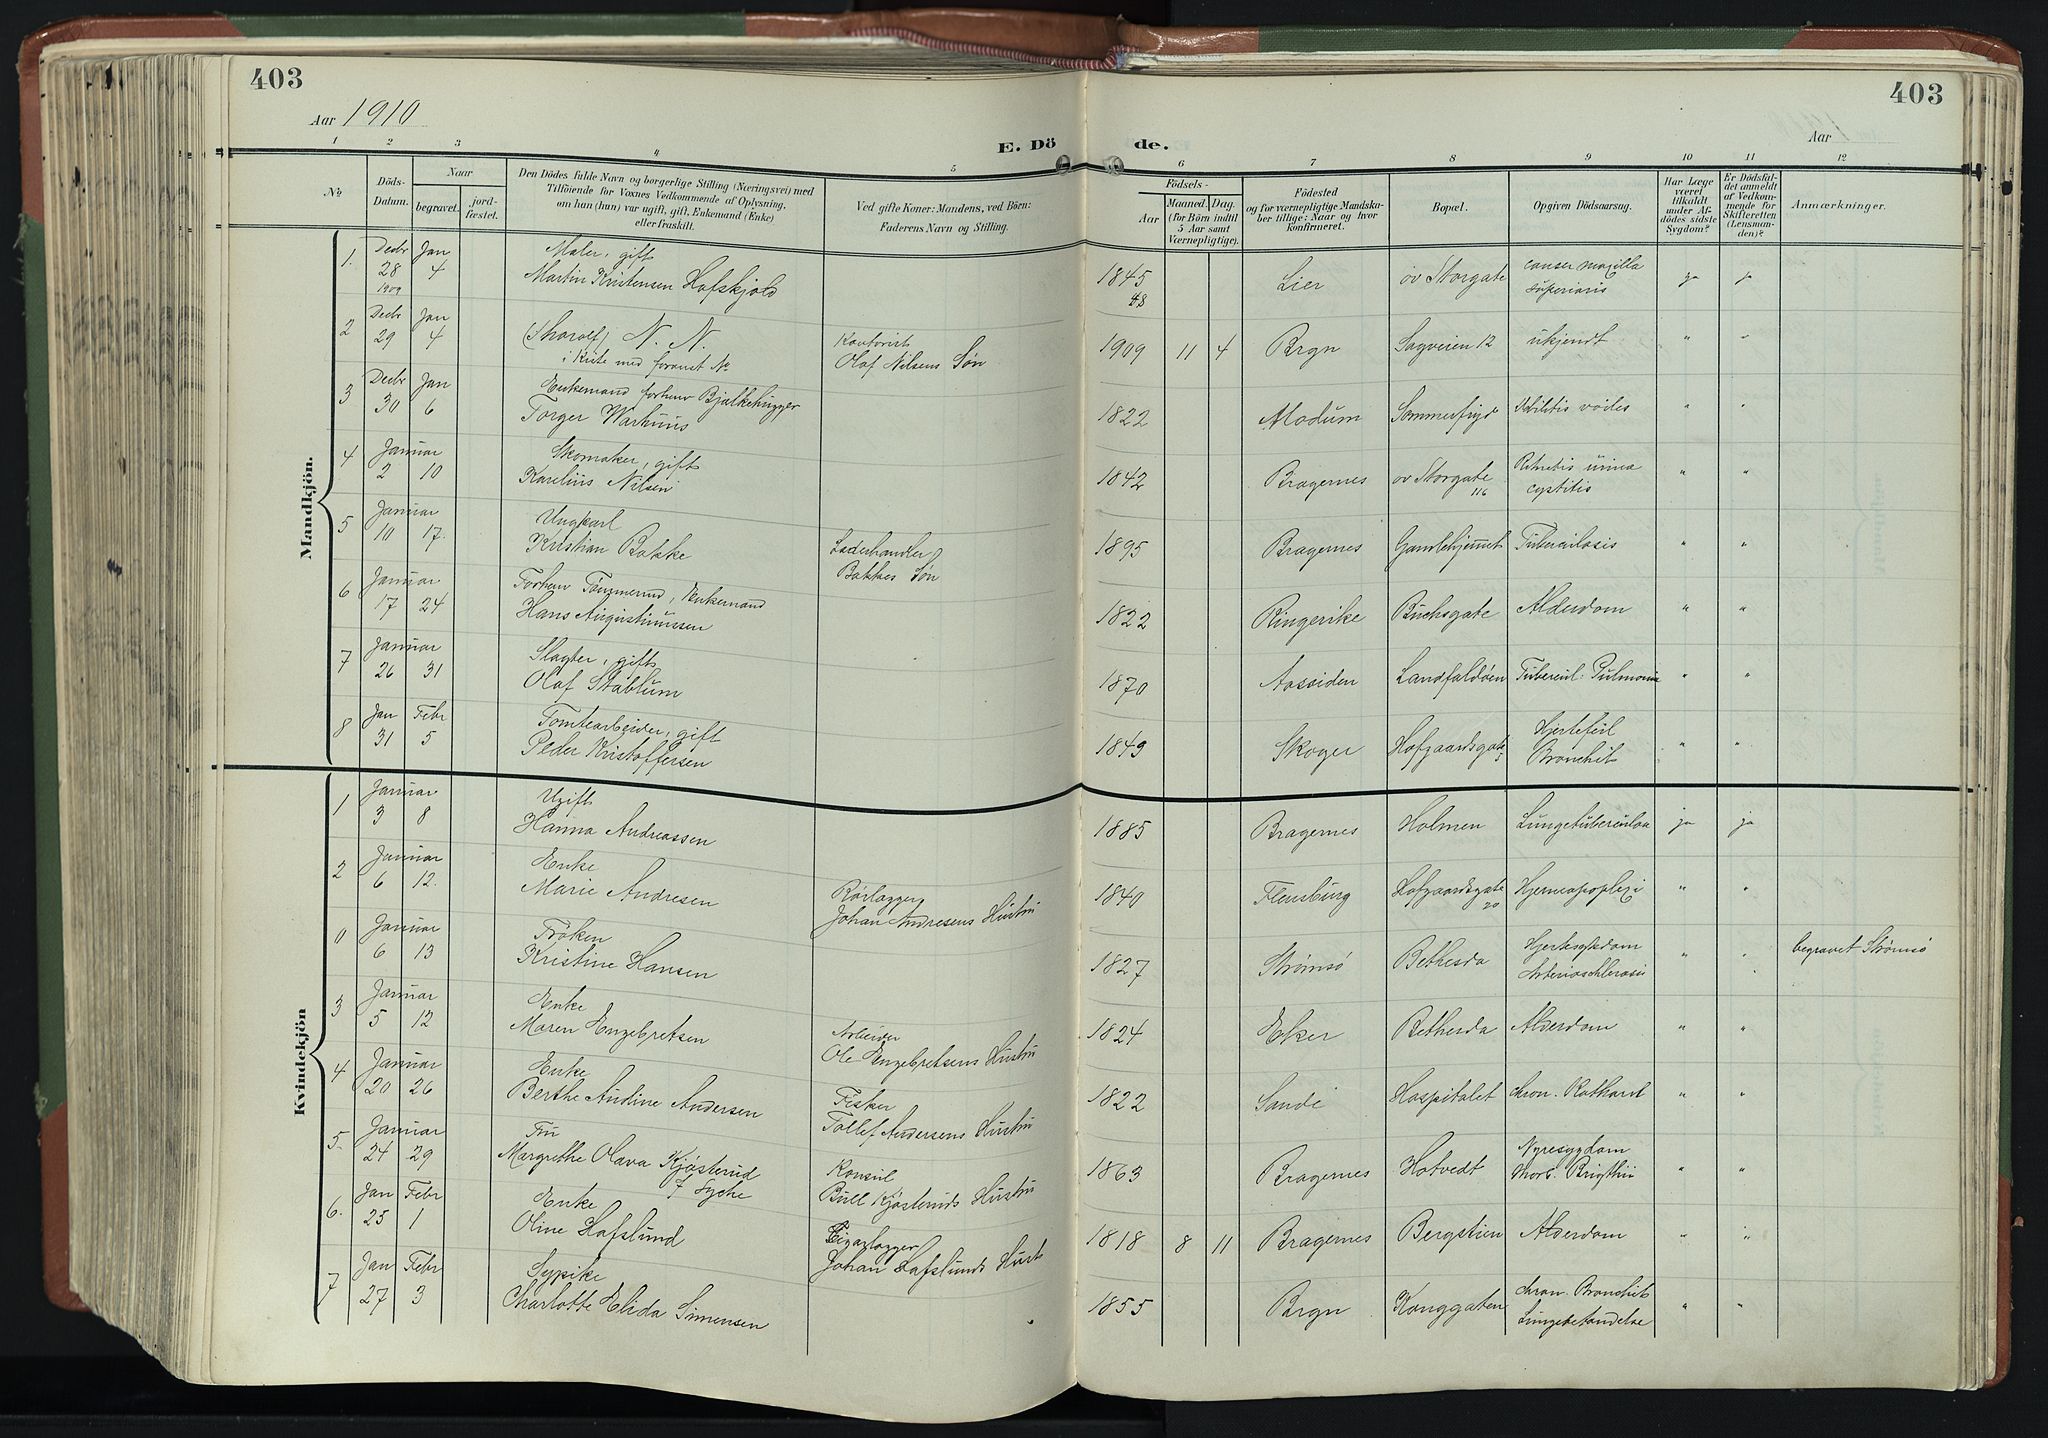 403
403
Aar 1910
Aar
E. Dö de.
1 2 3 4 5 6 7 8 9 10 11 12
No
Döds-Datum.
Naar
begravet.
jord-fæstet.
Den Dödes fulde Navn og borgerlige Stilling (Næringsvei) med
Tilföiende for Voxnes Vedkommende af Oplysning,
om han (hun) var ugift, gift, Enkemand (Enke)
eller fraskilt.
Ved gifte Koner: Mandens, ved Börn:
Faderens Navn og Stilling.
Födsels-
Aar
Maaned. Dag.
(for Börn indtil
5 Aar samt
Værnepligtige).
Födested
og for værnepligtige Mandska-
ber tillige: Naar og hvor
konfirmeret.
Bopæl.
Opgiven Dödsaarsag.
Har Læge
været
tilkaldt
under Af-
dödes sidste
Sygdom?
Er Dödsfal-
det anmeldt
af Vedkom-
mende for
Skifteretten
(Lensman-
den)?
Anmærkninger.
Mandkjön.
1. Decbr 28 1909 Jan 4 Maler, gift
Martin Kristensen Hafskjold 1845 48 Lier öv Storgate canser maxilla superioris ja ja
2 Decbr 29 Jan 4 (Thorolf) N. N.
i Kiste med foranst No Kontorist
Olaf Nilsens Søn 1909 11 4 Brgn Sagveien 12 ukjendt " "
3 Decbr 30 Jan 6 Enkemand forhenv Bjalkehugger
Torger Warhuus 1822 Modum Sommerfryd " "
4 Januar 2 10 Skomaker, gift
Karelius Nilsen 1842 Bragernes öv Storgate 116 urina
cystitis " "
5 Januar 10 17. Ungkarl
Kristian Bakke Læderhandler
Bakkes Søn 1895 Bragernes Gamlehjemmet Tuberculosis " "
6 Januar 17 24 Forhenv Tömmermd, Enkemand
Hans Augustinussen 1822 Ringerike Buchsgate Alderdom " "
7 Januar 26 31 Slagter, gift
Olaf Stablum 1870 Aassiden Landfaldöen Tubercul. Pulmonum " "
8 Jan 31 Febr 5 Tomtearbeider, gift
Peder Kristoffersen 1849 Skoger Hofgaardsgate 5 Hjertefeil
Bronchit " "
Kvindekjön
1 Januar 3 8 Ugift
Hanna Andreassen 1885 Bragernes Holmen Lungetuberculose ja ja
2 Januar 6 12. Enke
Marie Andresen Rörlægger
Johan Andresens Hustru 1840 Flensburg Hofgaardsgate 20 Hjerneapoplexi " "
0 Januar 6 13 Fröken
Kristine Hansen 1827 Strømsö Bethesda Hjertesygdom
Arterioschlerosis " " begravet Strømsö
3 Januar 5 12 Enke
Maren Engebretsen Arbeider
Ole Engebretsens Hustru 1824 Eker Bethesda Alderdom " "
4 Januar 20 26 Enke
Berthe Andine Andersen Fisker
Tollef Andersens Hustru 1822 Sande Hospitalet chron. Katharh " "
5. Januar 24 29 Fru
Margrethe Olava Kjösterud
f Lyche Konsul
Bull Kjösteruds Hustru 1863 Bragernes Hotvedt Nyresygdom
Morb. Brigthii " "
6. Jan 25 Febr 1 Enke
Oline Hafslund Cigarlægger
Johan Hafslunds Hustr 1818 8 11 Bragernes Bergstien Alderdom " "
7 Jan 27 Febr 3 Sypike
Charlotte Elida Simensen 1855 Brgn Konggaten chron. Bronchit
Lungebetændelse " "